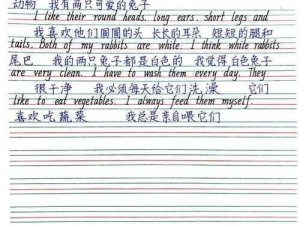 动物 我有两只可爱的兔子
I like their round heads, long ears, short legs and
我喜欢他们圆圆的头 长长的耳朵 短短的腿和
tails. Both of my rabbits are white. I think white rabbits
尾巴 我的两只兔子都是白色的 我觉得白色兔子
are very clean. I have to wash them every day. They
很干净 我必须每天给它们洗澡 它们
like to eat vegetables. I always feed them myself.
喜欢吃蔬菜 我总是亲自喂它们